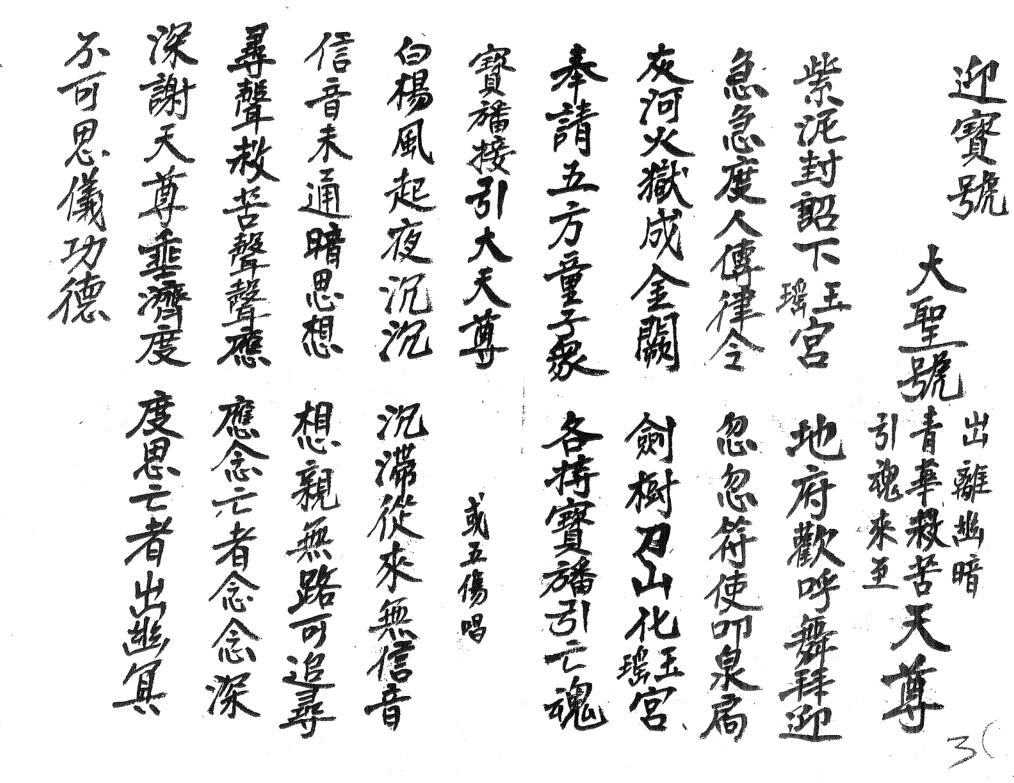 迎寶號
大聖號 出離幽暗 青華救苦 引魂來至 天尊
紫泥封詔下瑤玉宮 地府歡呼舞拜迎
急急度人傳律令 忽忽符使叩泉扃
灰河火獄成金闕 劍樹刀山化瑤玉宮
奉請五方童子眾 各持寶旛引亡魂
寶旛接引大天尊 或五傷唱
白楊風起夜沉沉 沉滯從來無信音
信音未通暗思想 想親無路可追尋
尋聲救苦聲聲應 應念亡者念念深
深謝天尊垂濟度 度思亡者出幽冥
不可思儀功德
3(